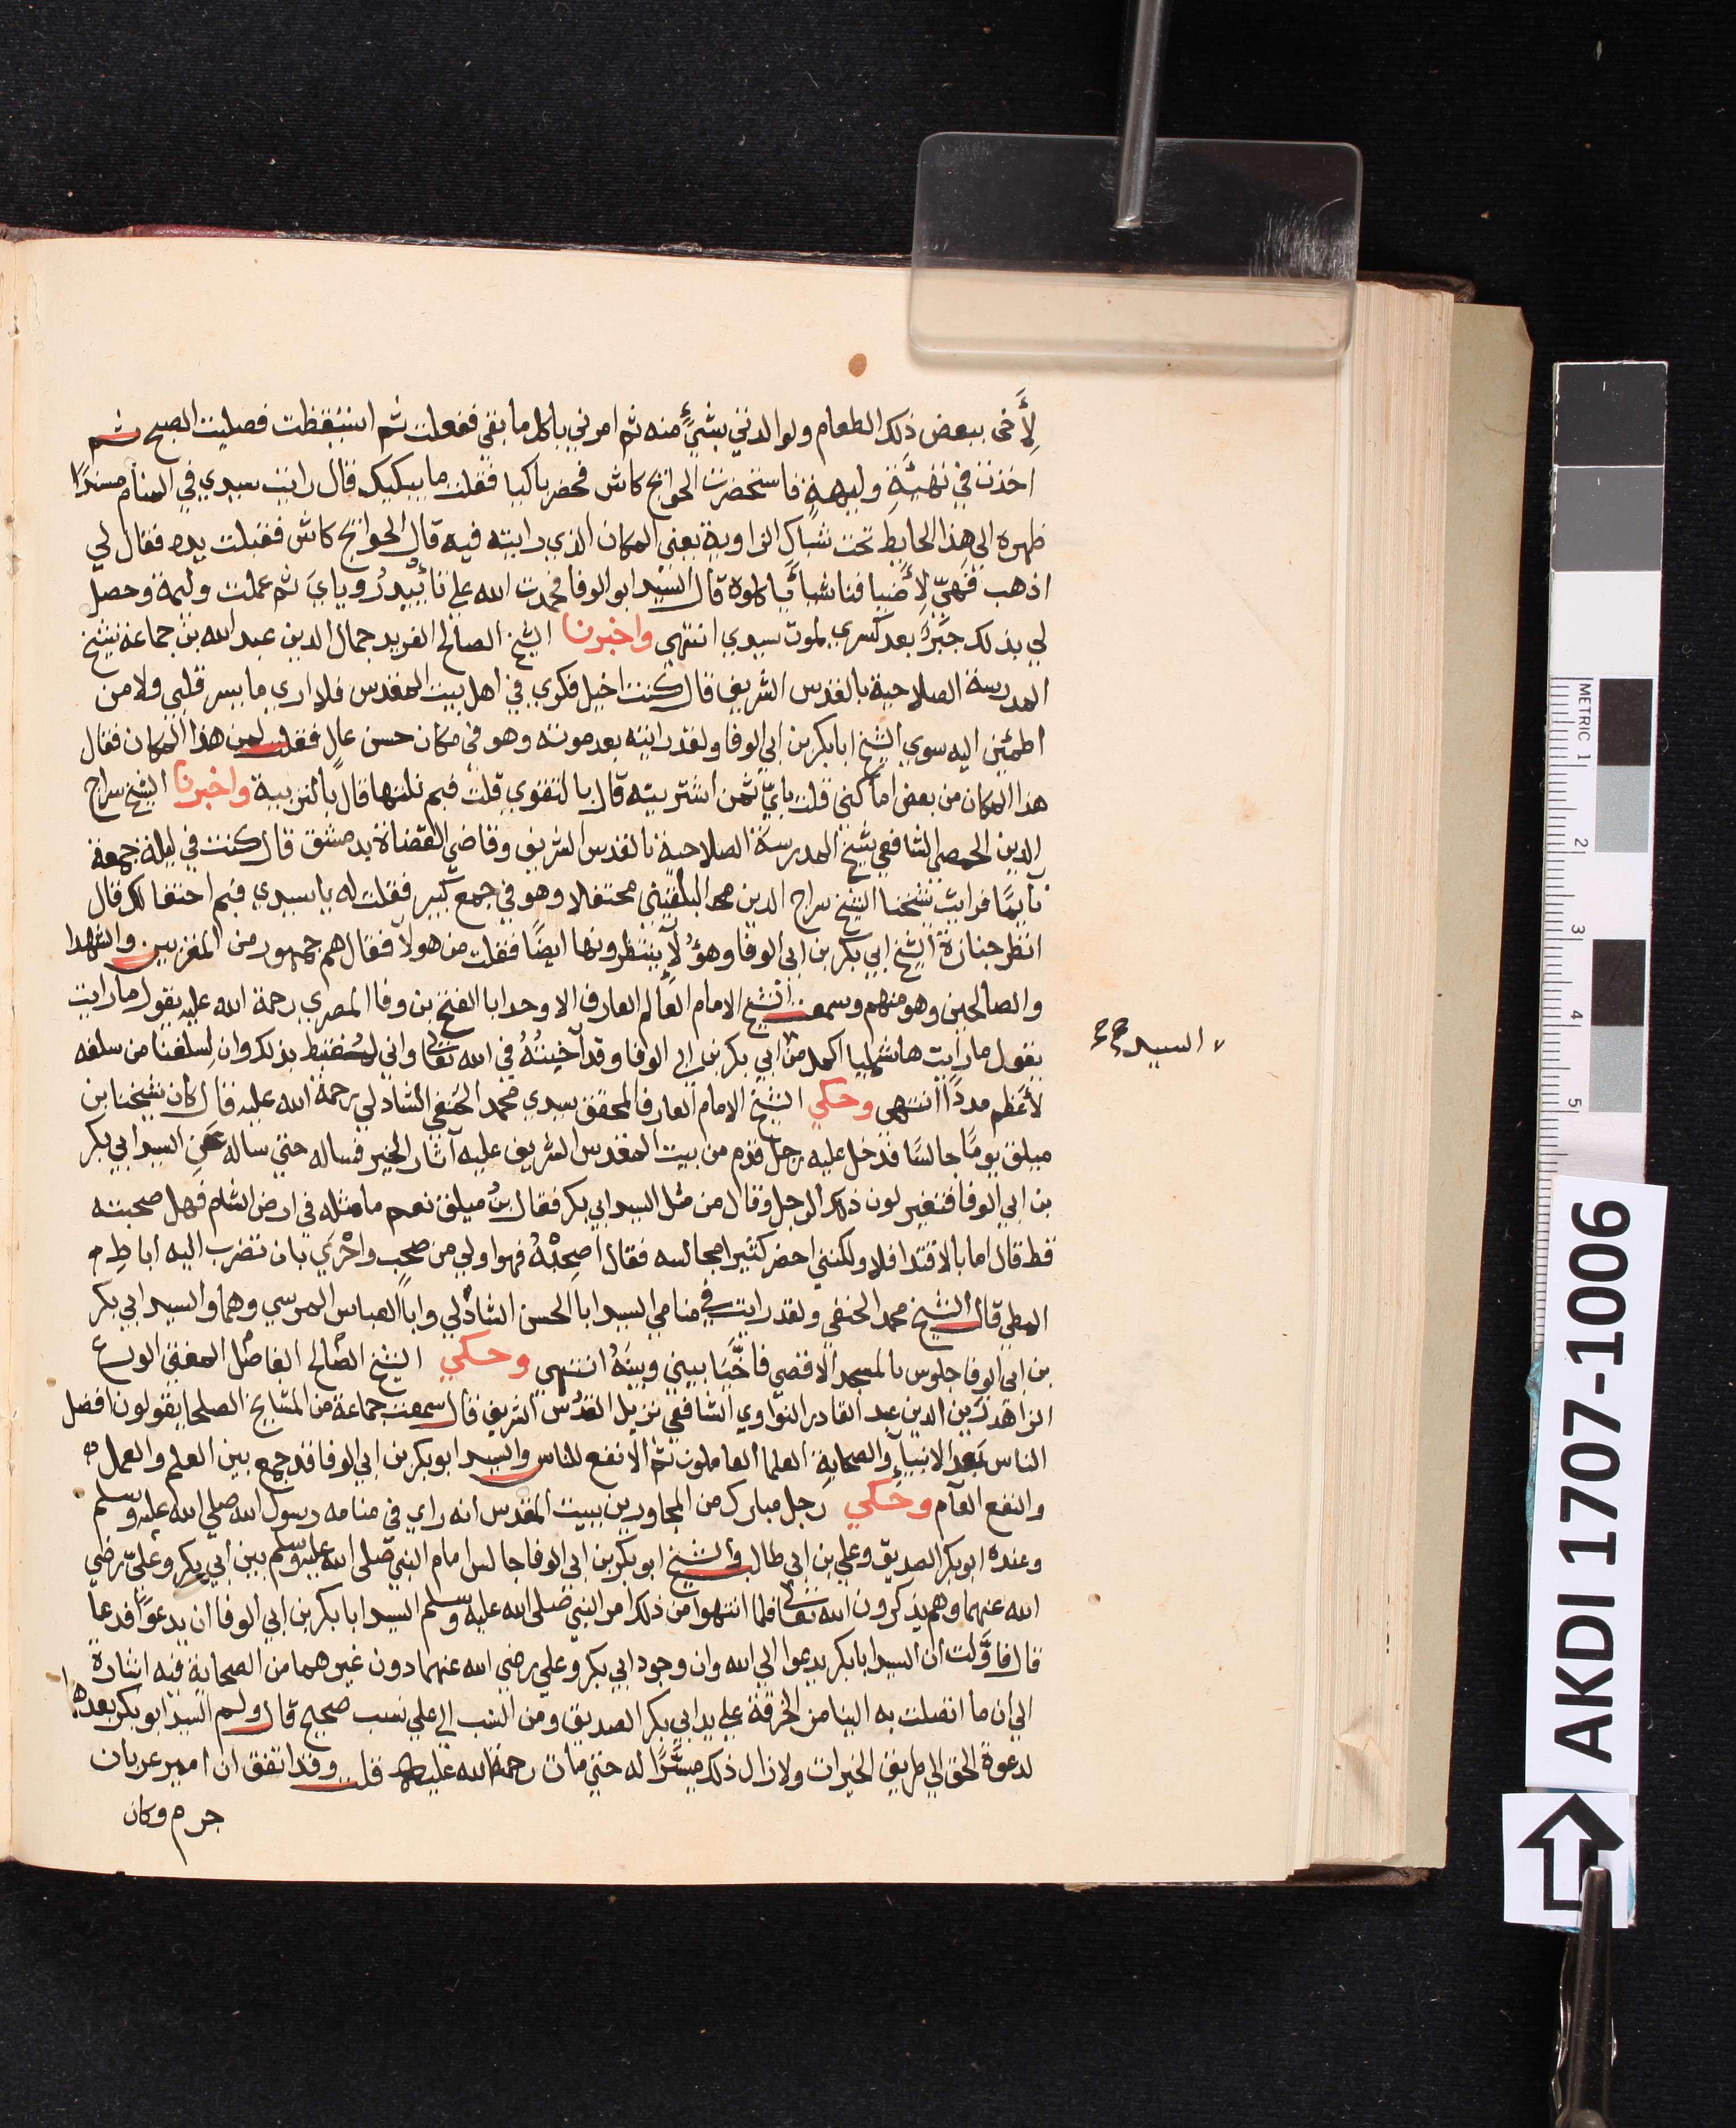 لِأَخى ببعض ذلك الطعام ولوالدتي بشئ منه ثم امرني باكل ما بقي ففعلت ثم استيقظت فصليت الصبح ثم
اخذت في تهيئة وليمة فاستحضرت الحوائج كاش فحضر باكيا فقلت ما يبكيك قال رايت سيدي في المنام مسندًا
ظهره الى هذا الحايط تحت شباك الزاوية يعني المكان الذي رايته فيه قال الحوائج كاش فقبلت يده فقال لي
اذهب فهيّ لِأضيافنا شيأ يأكلوه قال السيد ابو الوفا فحمدت الله علي تأييد رؤياي ثم عملت وليمة وحصل
لي بذلك جبرٌ بعد كسري بموت سيدي انتهى واخبرنا الشيخ الصالح الفريد جمال الدين عبد الله بن جماعة شيخ
المدرسة الصلاحية بالقدس الشريف قال كنت اخيل فكري في اهل بيت المقدس فلا اري ما يسر قلبي ولا من
اطمئن اليه سوي الشيخ ابا بكر بن ابي الوفا ولقد رايته بعد موته وهو في مكان حسن عالٍ فقلت لمن هذا المكان فقال
هذا المكان من بعض اماكني قلت بايّ ثمن اشتريته قال بالتقوي قلت فبم نلتها قال بالتربية واخبرنا الشيخ سراج
الدين الحمصي الشافعي شيخ المدرسة الصلاحية بالقدس الشريف وقاضي القضاة بدمشق قال كنت في ليلة جمعة
نأيمًا فرايت شيخنا الشيخ سراج الدين البلقيني محتفلا وهو في جمع كبير فقلت له يا سيدي فبم احتفالك قال
انظر جنازة الشيخ ابي بكر بن ابي الوفا وهؤلآ ينتظرونها ايضًا فقلت من هولآ فقال هم جمهور من المقربين والشهدا
والصالحين وهو منهم وسمعت الشيخ الامام العالم العارف الاوحد ابا الفتح بن وفا المصري رحمة الله عليه يقول ما رايت
يقول ما رأيت هاشميا اكمل من ابي بكر بن ابي الوفا وقد آخيتُهُ في الله تعالى واني لمغتبط بذلك وان لسلفنا من سلفه
السيد صح
لأعظم مددًا انتهى وحكي الشيخ الامام العارف المحقق سيدي محمد الحنفي الشاذلي رحمة الله عليه قال كان شيخنا بن
ميلق يومًا جالسًا فدخل عليه رجل قدم من بيت المقدس الشريف عليه آثار الخير فساله حتي ساله عن السيد ابي بكر
بن ابي الوفا فتغير لون ذلك الرجل وقال من مثل السيد ابي بكر فقال بن ميلق نعم ما مثله في ارض الشام فهل صحبته
قط قال اما بالاقتدا فلا ولكنني احضر كثيرا مجالسه فقال اصحبْهُ فهو اولي من صحب واحْري بان تضرب اليه اباط
المطي قال الشيخ محمد الحنفي ولقد رايت في منامي السيد ابا الحسن الشاذلي وابا العباس المرسي وهما والسيد ابي بكر
بن ابي الوفا جلوس بالمسجد الاقصي فاخَّيَا بيني وبينهُ انتهى وحكي الشيخ الصالح الفاضل المفتي الورع
الزاهد زين الدين عبد القادر النواوي الشافعي نزيل القدس الشريف قال سمعت جماعة من المشايخ الصلحا يقولون افضل
الناس بعد الانبياء والصحابة العلما العاملون ثم الانفع للناس والسيد ابو بكر بن ابي الوفا قد جمع بين العلم والعمل
والنفع العآم وحكي رجل مبارك من المجاورين ببيت المقدس انه راي في منامه رسول الله صلي الله عليه وسلم
وعنده ابو بكر الصديق وعلي بن ابي طالب والشيخ ابو بكر بن ابي الوفا جالس امام النبي صلى الله عليه وسلم بين ابي بكر وعليّ رضي
الله عنهما وهم يذكرون الله تعالى فلما انتهوا من ذلك امر النبي صلى الله عليه وسلم السيد ابا بكر بن ابي الوفا ان يدعوا فدعا
قال فاوَّلت ان السيد ابا بكر يدعوا الي الله وان وجود ابي بكر وعلي رضي الله عنهما دون غيرهما من الصحابة فيه اشارة
الي ان ما اتصلت به الينا من الخرقة علي يد ابي بكر الصديق ومن النسب الي علي نسب صحيح قال ولم السيد ابو بكر بعدها
لدعوة الحق الي طريق الخيرات ولا زال ذلك ميسَّرًا له حتي مات رحمة الله عليه قلت وقد اتفق ان امير عربان
جرم وكان
AKDI 1707-1006
METRIC 1
2
3
4
5